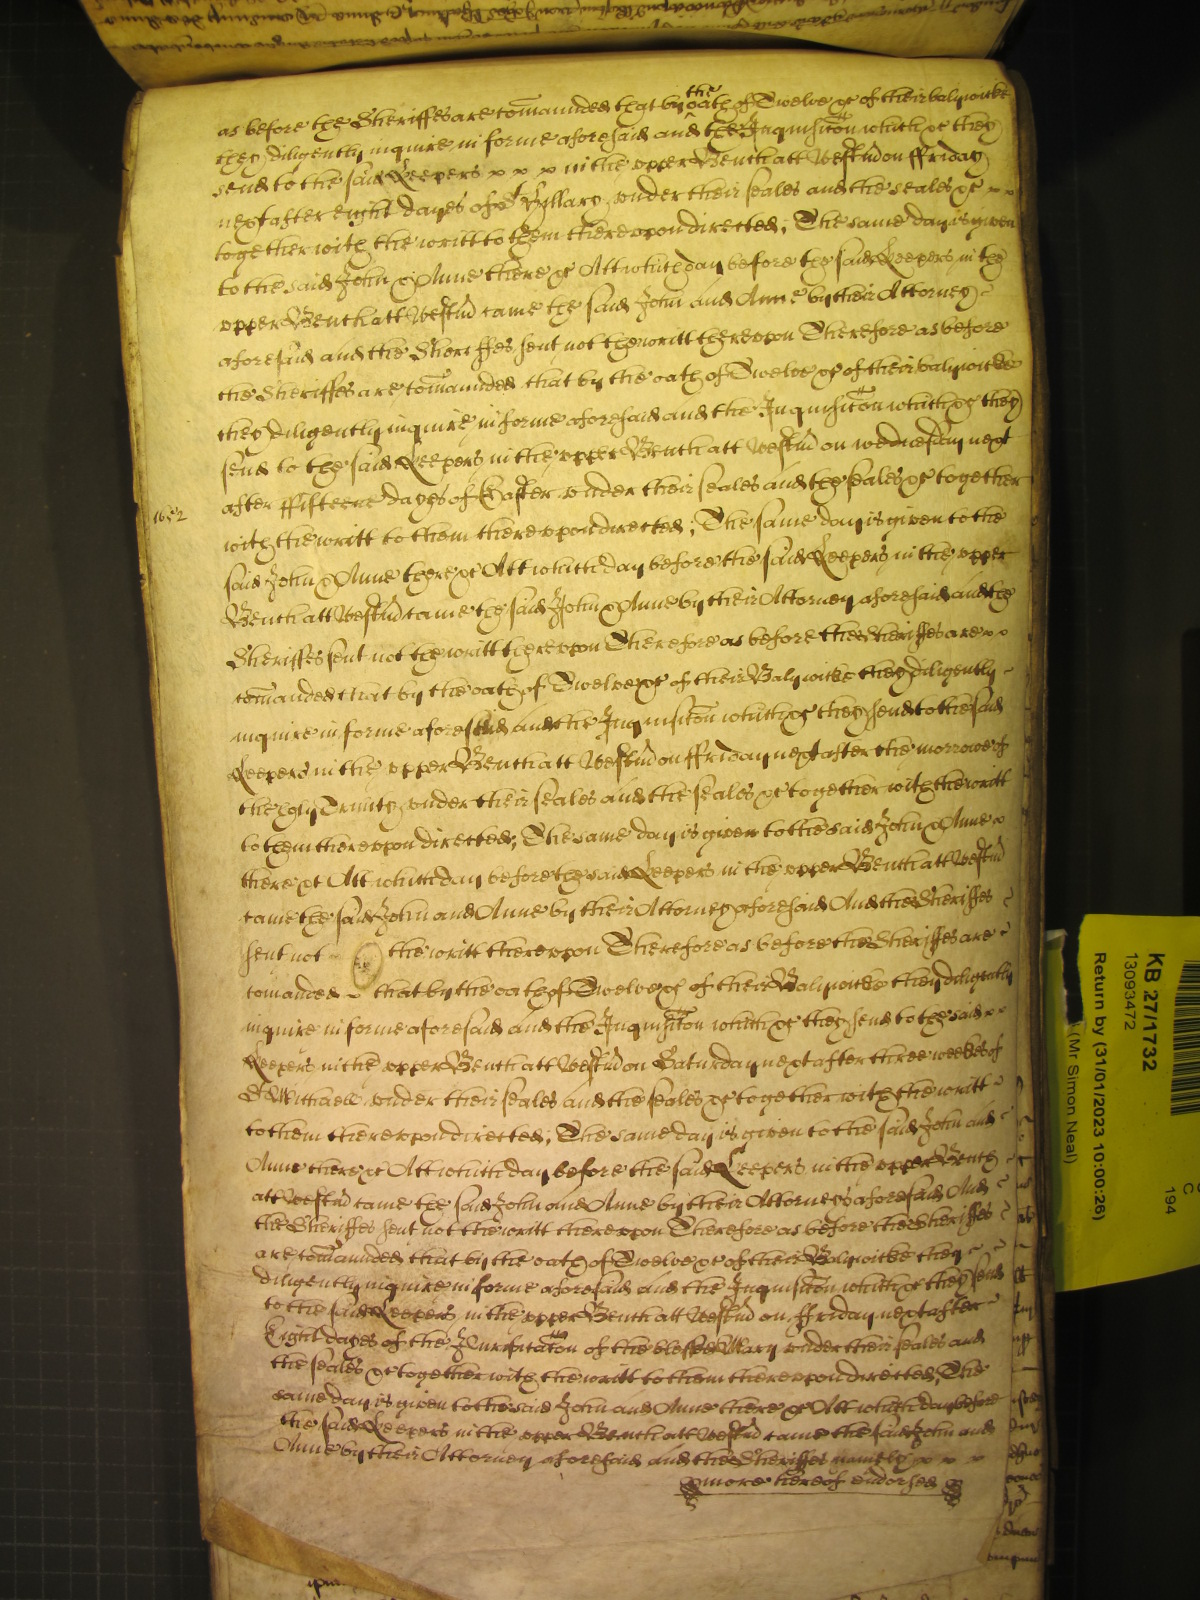 as before the Sheriffes are com̄aunded that by the oath of Twelve &c of their baliwicke
they diligently inquire in forme aforesaid and the Inquisic̄on which &c they
send to the said Keepers x x x in the upper Bench att Westm̄ on ffriday
next after eight dayes of St Hillary under their seales and the seales &c x x
together with the writt to them thereupon directed; The same day is given
to the said John & Anne there &c Att which day before the said Keepers in the
upper Bench att Westm̄ came the said John and Anne by their Attorney
aforesaid and the Sheriffes sent not the writt thereupon Therefore as before
the Sheriffes are com̄aunded that by the oath of Twelve &c of their baliwicke
they diligently inquire in forme aforesaid and the Inquisic̄on which &c they
send to the said Keepers in the upper Bench att Westm̄ on wednesday next
after fifteene dayes of Easter under their seales and the seales &c together
1652
with the writt to them thereupon directed; The same day is given to the
said John & Anne there &c Att which day before the said Keepers in the upper
Bench att Westm̄ came the said John & Anne by their Attorney aforesaid and the
Sheriffes sent not the writt thereupon Therefore as before the Sheriffes are x x
com̄anded that by the oath of Twelve &c of their Baliwicke they diligently
inquire in forme aforesaid and the Inquisic̄on which &c they send to the said
Keepers in the upper Bench att Westm̄ on ffriday next after the morrowe of
the holy Trinity under their seales and the seales &c together with the writt
to them thereupon directed; The same day is given to the said John & Anne x
there &c Att which day before the said Keepers in the upper Bench att Westm̄
came the said John and Anne by their Attorney aforesaid And the Sheriffes
sent not the writt thereupon Therefore as before the Sheriffes are
com̄anded x that by the oath of Twelve &c of their Baliwicke they diligently
inquire in forme aforesaid and the Inquisic̄on which &c they send to the said x
Keepers in the upper Bench att Westm̄ on Saturday next after three weekes of
St Michael under their seales and the seales &c together with the writt
to them thereupon directed; The same day is given to the said John and
Anne there &c Att which day before the said Keepers in the upper Bench
att Westm̄ came the said John and Anne by their Attorney aforesaid And
the Sheriffes sent not the writt thereupon Therefore as before the Sheriffes
are com̄aunded that by the oath of Twelve &c of their Baliwicke they
diligently inquire in forme aforesaid and the Inquisic̄on which &c they send
to the said Keepers in the upper Bench att Westm̄ on ffriday next after
Eight dayes of the Purificac̄on of the blessed Mary under their seales and
the seales &c together with the writt to them thereupon directed; The
same day is given to the said John and Anne there &c Att which day before
the said Keepers in the upper Bench att Westm̄ came the said John and
Anne by their Attorney aforesaid and the Sheriffes namely x x x
more hereof endorsed
KB 27/1732
13093472
Return by (31/01/2023 10:00:26)
(Mr Simon Neal)
C
194